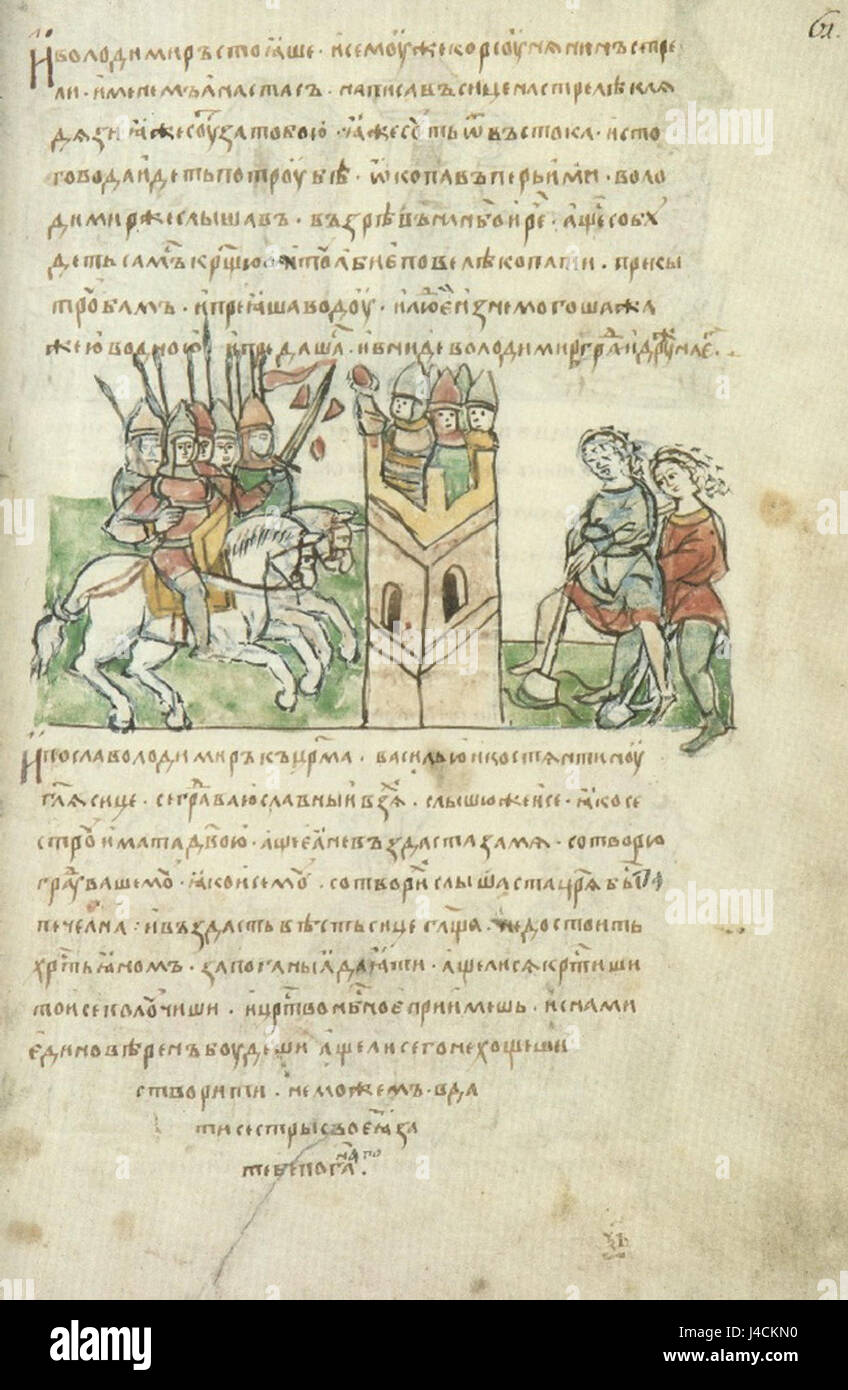 И володимиръ стоꙗше · и се моуже корсоунѧнинъ стре
ли · именемъ анастасъ · написавъ сице на стрелѣ клѧ
дѧзи ꙗже соуⷮ за тобою · ꙗже сⷭть ѿ въстока · исто
го вода идеть по троубѣ · ѡкопавъ перьими · воло
димир же слышавъ · възрѣвъ на нб҃о и рⷱе · аще собꙋ
деть самъ крⷭщюсѧ и тоⷧ абие повелѣ копати · прекы
троⷹбамъ · и преꙗша водоу · и люⷣе изнемогоша жа
жею водною · и предашаⷭ · и вниде володимиръ граⷣ и дрꙋжи
И посла володимиръ къ црⷭма · василью и костѧнтиноу
глѧ сице · се граⷣ ваю славный взѧⷯ · слышю же и се · ꙗко се
строⷹ имата двою · аще еꙗ не въздаста за мѧ · сотворю
граⷣꙋ вашемоⷹ · ꙗко и семоⷹ · сотвориⷯ и слышаста црⷭѧ быⷭта
печална · и въздасть вѣсть сице глщѧ · не достоить
хрⷭтьꙗномъ · за поганыꙗ даꙗти · аще ли сѧ крⷭтиши
то и се полоⷹчиши · и црⷭтво нбⷭное приимешь · и с нами
единовѣренъ боудеши аще ли сего не хощеши
створити · не можемъ · вда
ти сестры своеꙗ за
тебе погаⷩ ·
alamy
Image ID: J4CKN0
www.alamy.com